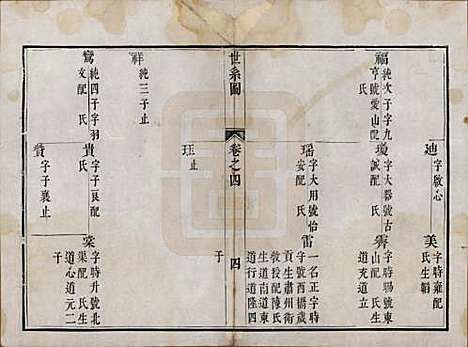 迪
字啟心
美
字時雍配
氏生韜
福
純次子字九
亨號愛山配
氏
瓊
字大器號古
誠配
氏
霽
字時暘號東
山配 氏生
道充道立
瑶
字大用號怡
安配 氏
雷
一名正字時
守號西橋歲
貢生肅州衛
教授配陳氏
生道南道東
道行道隆四
子
世系圖
卷之四
四
珏
止
祥
純三子止
鸞
純四子字羽
文配 氏
貴
字子良配
氏
棠
字時升號北
渠配 氏生
道心道元二
子
贊
字子襄止